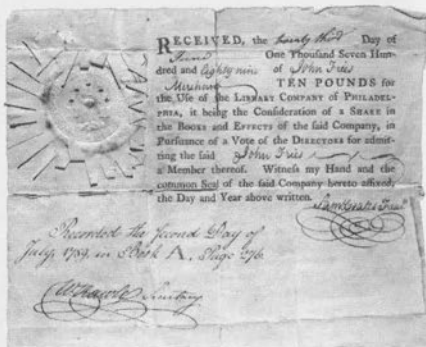 RECEIVED, the twenty third Day of
June One Thousand Seven Hun-
dred and Eighty nine of John Fries
Merchant TEN POUNDS for
the Use of the LIBRARY COMPANY OF PHILADEL-
PHIA, it being the Consideration of a SHARE in
the BOOKS and EFFECTS of the said Company, in
Pursuance of a Vote of the DIRECTORS for admit-
ting the said John Fries
a Member thereof. Witness my Hand and the
common Seal of the said Company hereto affixed,
the Day and Year above written.
Recorded the Second Day of
July, 1789, in Book A. Page 276.
Secretary